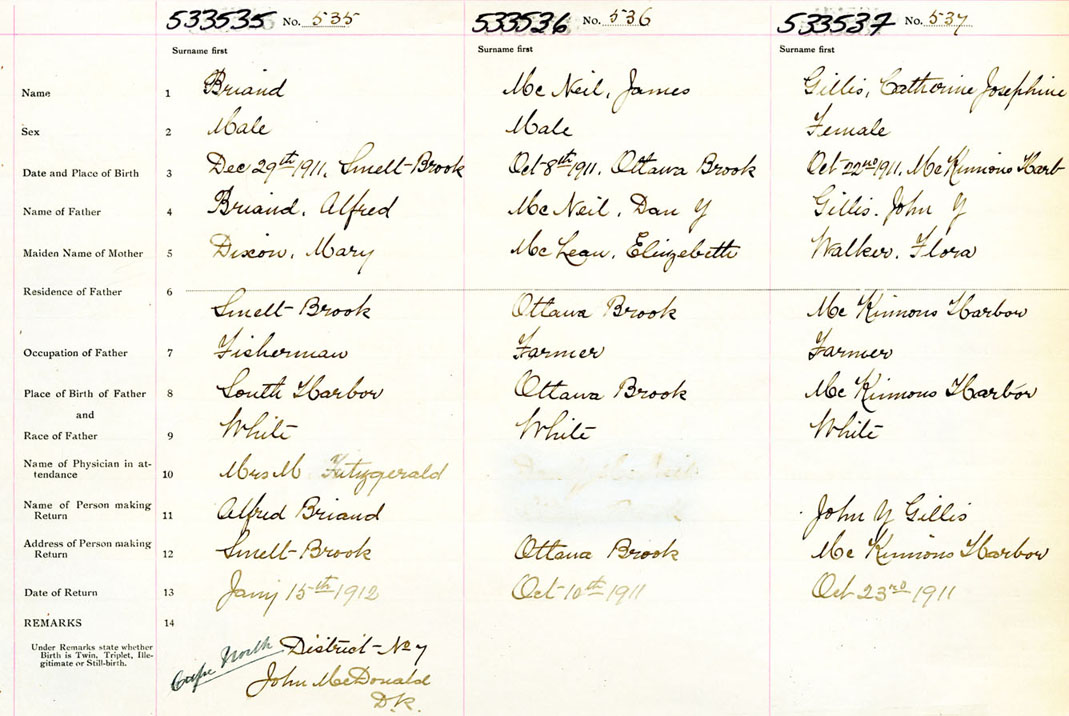 533535 No. 535 533536 No. 536 533537 No. 537
Surname first Surname first Surname first
Name 1 Briand Mc Neil, James Gillis, Catherine Josephine
Sex 2 Male Male Female
Date and Place of Birth 3 Dec 29th 1911, Smelt-Brook Oct 8th 1911, Ottawa Brook Oct 22nd 1911, Mc Kinnons Harb
Name of Father 4 Briand, Alfred Mc Neil, Dan Y Gillis. John Y
Maiden Name of Mother 5 Dixon, Mary Mc Lean, Elizebeth Walker, Flora
Residence of Father 6
Smelt-Brook Ottawa Brook Mc Kinnons Harbor
Occupation of Father 7 Fisherman Farmer Farmer
Place of Birth of Father 8 South Harbor Ottawa Brook Mc Kinnons Harbor
and
Race of Father 9 White White White
Name of Physician in at-
tendance 10 Mrs M Fitzgerald
Name of Person making
Return 11 Alfred Briand John Y Gillis
Address of Person making
Return 12 Smelt-Brook Ottawa Brook Mc Kinnons Harbor
Date of Return 13 Jany 15th 1912 Oct 10th 1911 Oct 23rd 1911
REMARKS 14
Under Remarks state whether
Birth is Twin, Triplet, Ille-
gitimate or Still-birth.
Cape North District-No 7
John McDonald
D.R.